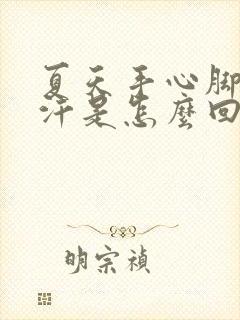 夏天手心脚
汗是怎麽回
明宗禎